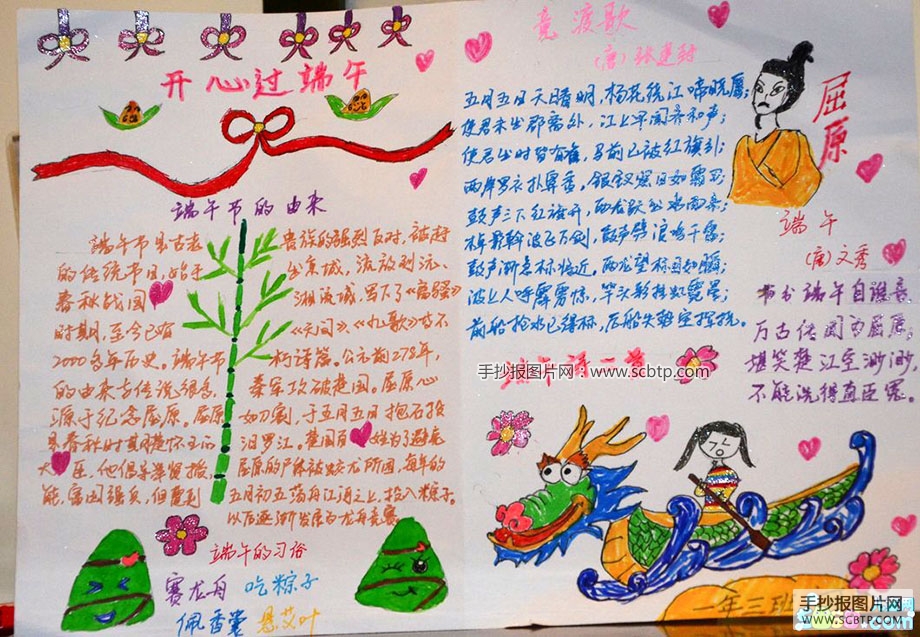 开心过端午
端午节的由来
端午节是古老
的传统节日,始于
春秋战国
时期,至今已有
2000多年历史。端午节
的由来与传说很多,
源于纪念屈原。屈原
是春秋时期楚怀王的
大臣,他倡导举贤授
能,富国强兵,但遭到
贵族的强烈反对,被赶
出京城,流放到沅、
湘流域,写下了《离骚》
《天问》、《九歌》等不
朽诗篇。公元前278年,
秦军攻破楚国。屈原心
如刀割,于五月五日抱石投
汨罗江。楚国百姓为了避免
屈原的尸体被蛟龙所困,每年的
五月初五荡舟江河之上,投入粽子。
以后逐渐发展为龙舟竞赛
端午的习俗
赛龙舟 吃粽子
佩香囊 悬艾叶
竞渡歌
(唐)张建封
五月五日天晴明,杨花绕江啼晓莺;
使君未出郡斋外,江上早闻齐和声;
使君出时皆有准,马前已被红旗引;
两岸罗衣扑鼻香,银钗照日如霜刃;
鼓声三下红旗开,两龙跃出浮水来;
棹影斡波飞万剑,鼓声劈浪鸣千雷;
鼓声渐急标将近,两龙望标目如瞬;
波上人呼霹雳惊,竿头彩挂虹霓晕;
前船抢水已得标,后船失势空挥挠。
端午诗一首
屈原
端 午
(唐)文秀
节分端午自谁言,
万古传闻为屈原;
堪笑楚江空渺渺,
不能洗得直臣冤。
手抄报图片网:www.scbtp.com
一年三班
手抄报图片网
WWW.SCBTP.COM